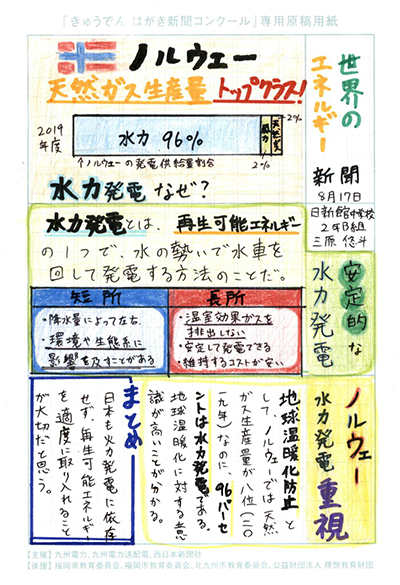 「きゅうでん はがき新聞コンクール」専用原稿用紙
世界の
エネルギー
新聞
8月17日
日新館中学校
2年B組
三原 悠斗
ノルウェー
天然ガス生産量トップクラス!
2019
年度
水力 96%
風力
天然ガス
2%
2%
↑ノルウェーの発電供給量割合
水力発電なぜ?
安定的な
水力発電
水力発電とは、再生可能エネルギー
の1つで、水の勢いで水車を
回して発電する方法のことだ。
短所
・降水量によって左右
・環境や生態系に
影響を及すことがある
長所
・温室効果ガスを
排出しない
・安定して発電できる
・維持するコストが安い
ノルウェー
水力発電重視
地球温暖化防止と
して、ノルウェーでは天然
ガス生産量が八位(二〇
一九年)なのに、96パーセ
ントは水力発電である。
地球温暖化に対する意
識が高いことが分かる。
まとめ
日本も火力発電に依存
せず、再生可能エネルギー
を適度に取り入れること
が大切だと思う。
【主催】九州電力、九州電力送配電、西日本新聞社
【後援】福岡県教育委員会、福岡市教育委員会、北九州市教育委員会、公益財団法人 理想教育財団